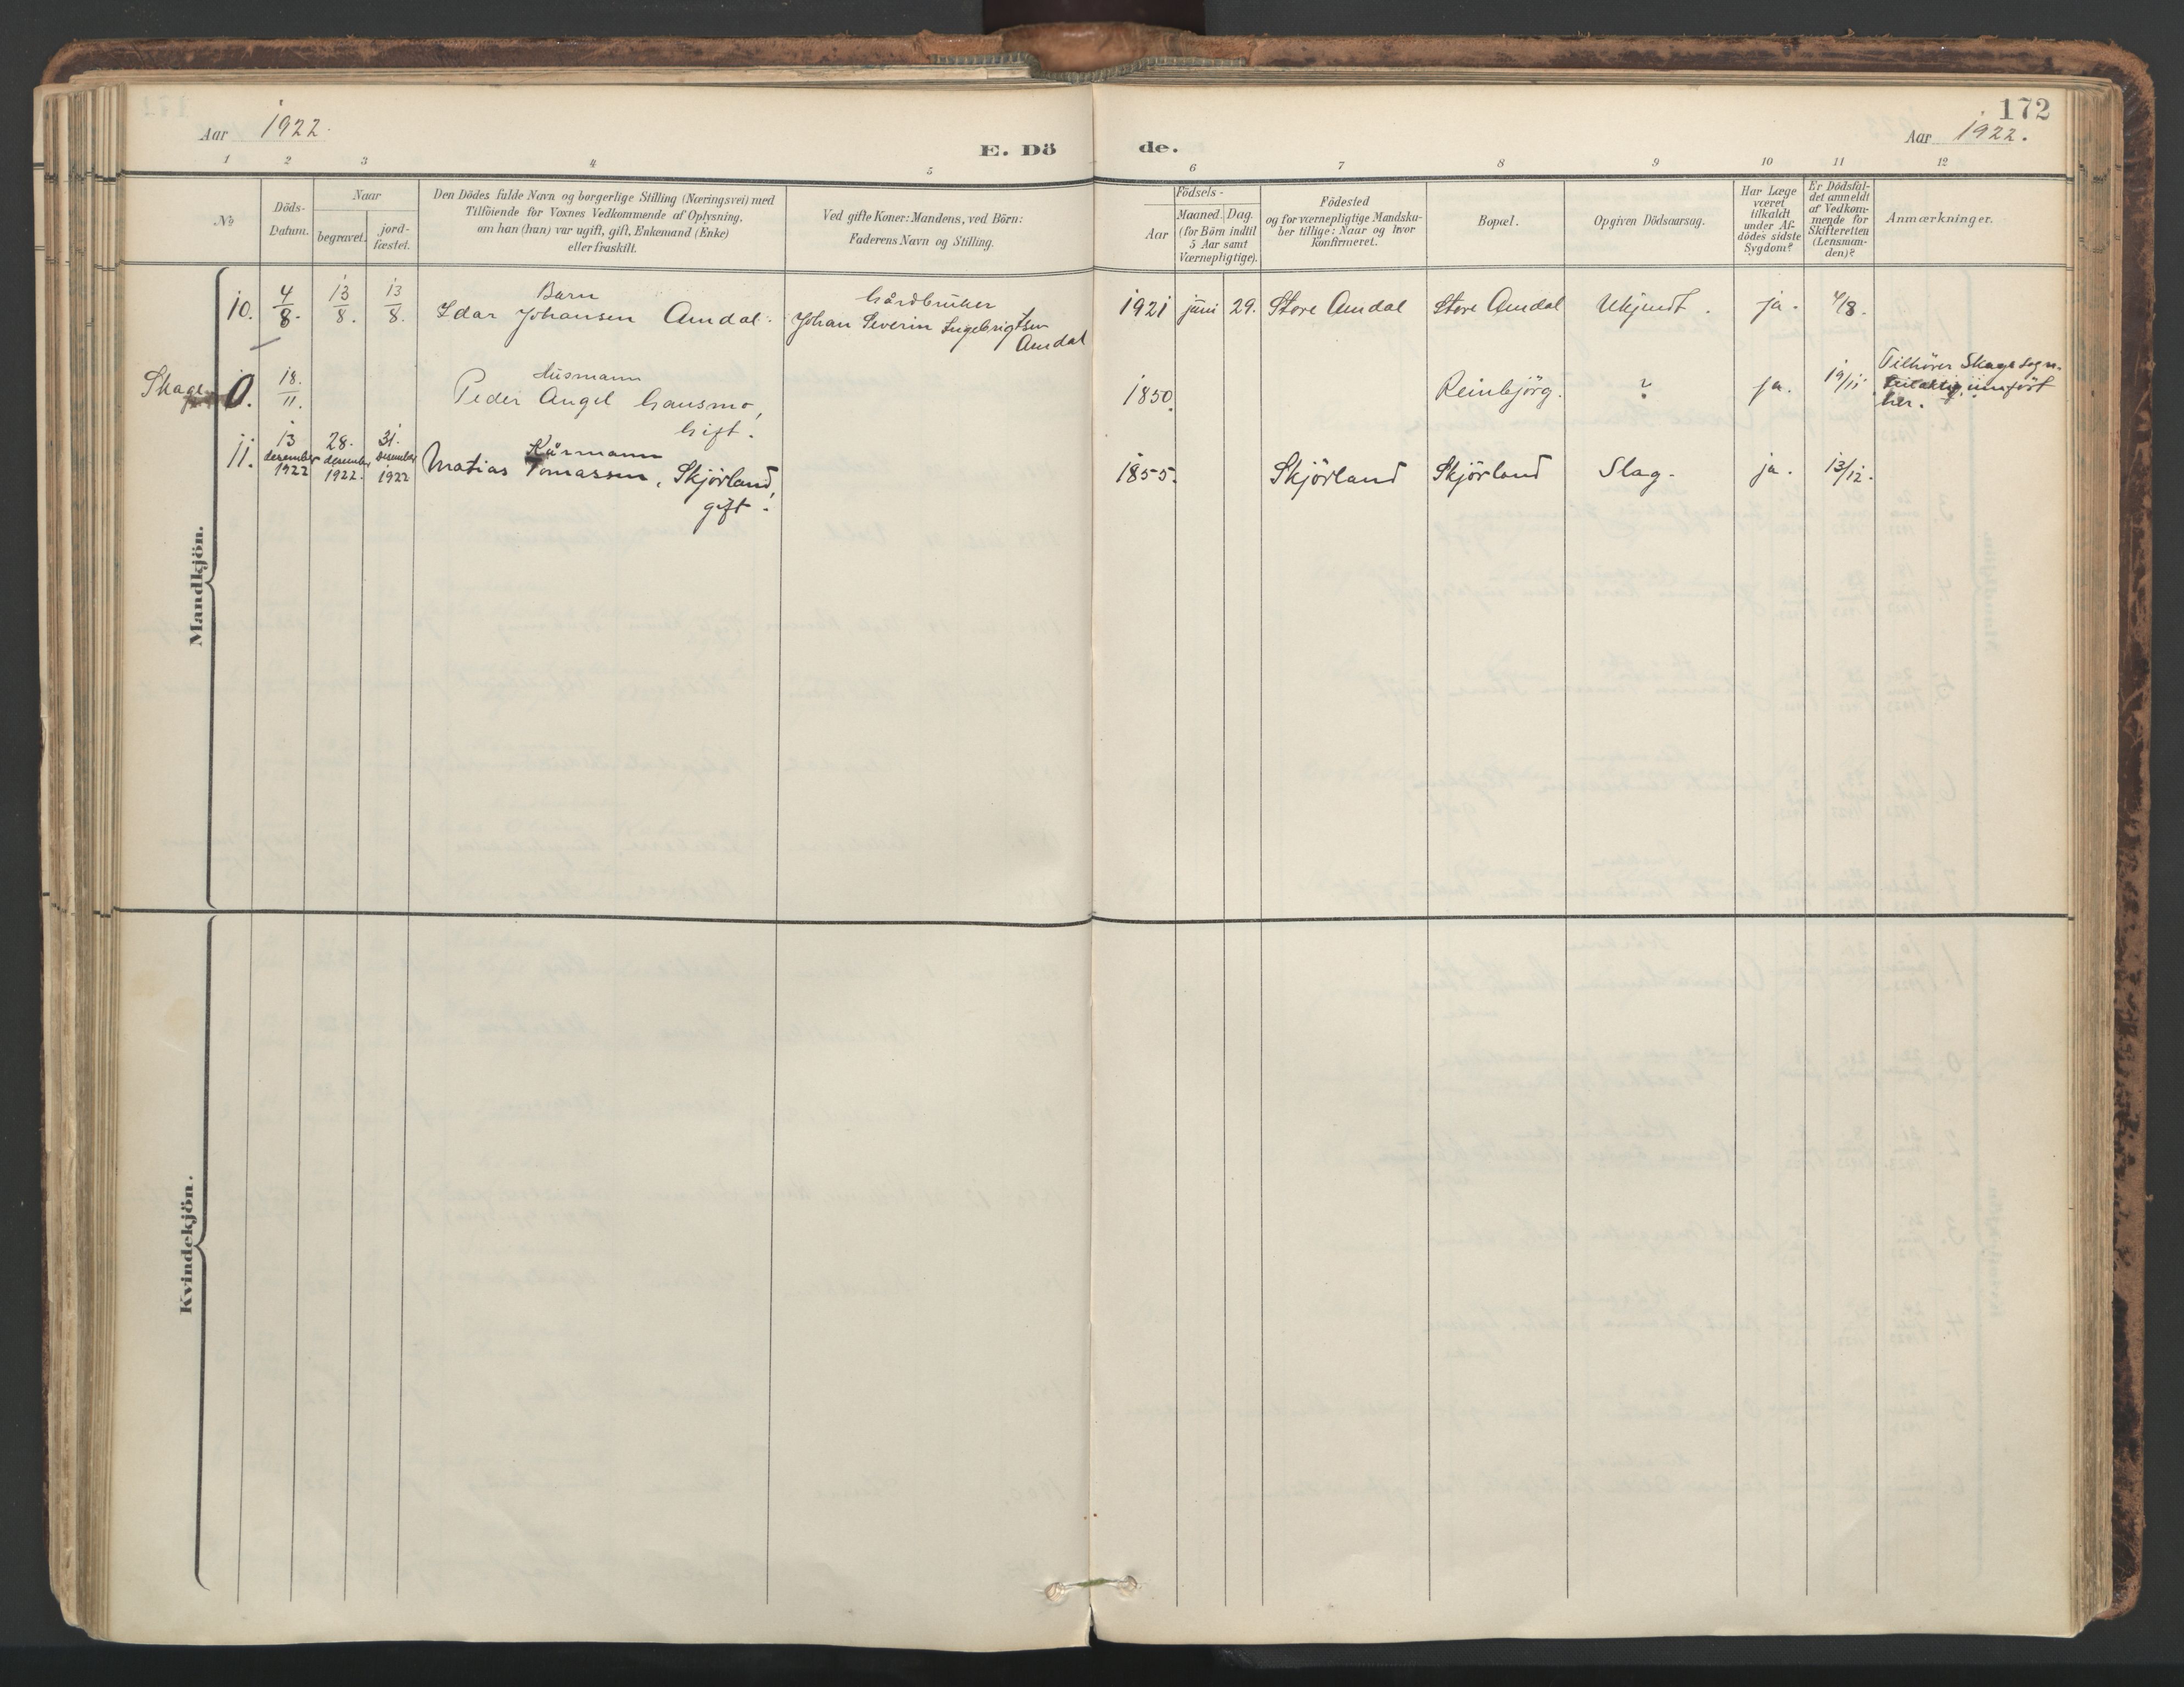 172
Aar 1922.
E. Dö
de.
Aar 1922.
1 2 3 4 5 6 7 8 9 10 11 12
No
Döds-
Datum.
Naar
begravet.
jord-
fæstet.
Den Dödes fulde Navn og borgerlige Stilling (Næringsvei) med
Tilföiende for Voxnes Vedkommende af Oplysning,
om han (hun) var ugift, gift, Enkemand (Enke)
eller fraskilt.
Ved gifte Koner: Mandens, ved Börn:
Faderens Navn og Stilling.
Födsels-
Aar
Maaned. Dag.
(for Börn indtil
5 Aar samt
Værnepligtige).
Födested
og for værnepligtige Mandsku-
ber tillige: Naar og hvor
Konfirmeret.
Bopæl.
Opgiven Dödsaarsag.
Har Læge
været
tilkaldt
under Af-
dödes sidste
Sygdom?
Er Dödsfal-
det anmeldt
af Vedkom-
mende for
Skifteretten
(Lensman-
den)?
Anmærkninger.
Mandkjön.
10. 4/8. 13/8. 13/8.
Barn
Idar Johansen Amdal.
Gårdbruker
Johan Severin Ingebrigtsen
Amdal
1921 juni 29. Store Amdal Store Amdal Ukjendt. ja. 4/8.
Skage
0. 18./11.
Husmann
Peder Angel Gansmo,
Gift.
1850. Reinbjörg. ? ja. 19/11
Tilhörer Skage sogn.
innfört
her.
11. 13 desember 1922 28. desember 1922. 31. desember 1922
Kårmann
Matias Tomassen, Skjörland,
gift.
1855. Skjörland Skjörland Slag. ja. 13/12.
Kvindekjön.